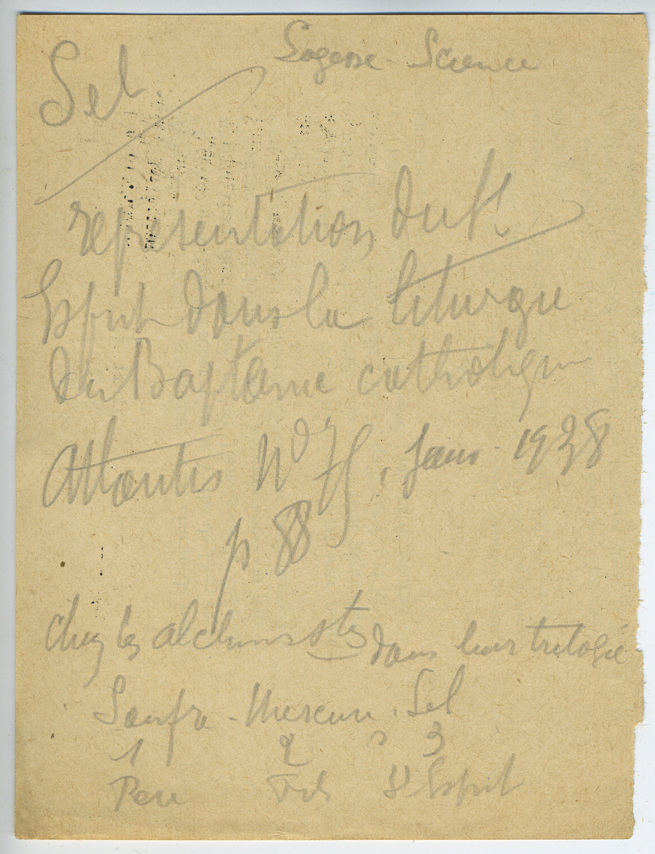 Sagesse - Science
Sel
représentation du St
Esprit dans la liturgie
du Baptême catholique
Atlantis No 75, Janv 1938
p 88
chez les alchimistes dans leur trilogie
Soufre - Mercure - Sel
1 2 3
Père Fils St Esprit